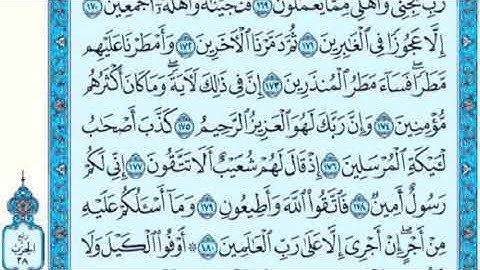 رَبِّ نَجِّنِي وَأَهْلِي مِمَّا يَعْمَلُونَ ١٦٩ فَنَجَّيْنَٰهُ وَأَهْلَهُۥٓ أَجْمَعِينَ ١٧٠
إِلَّا عَجُوزًا فِي ٱلْغَٰبِرِينَ ١٧١ ثُمَّ دَمَّرْنَا ٱلْأٓخَرِينَ ١٧٢ وَأَمْطَرْنَا عَلَيْهِم
مَّطَرًاۖ فَسَآءَ مَطَرُ ٱلْمُنذَرِينَ ١٧٣ إِنَّ فِي ذَٰلِكَ لَأٓيَةًۖ وَمَا كَانَ أَكْثَرُهُم
مُّؤْمِنِينَ ١٧٤ وَإِنَّ رَبَّكَ لَهُوَ ٱلْعَزِيزُ ٱلرَّحِيمُ ١٧٥ كَذَّبَ أَصْحَٰبُ
لْـَٔيْكَةِ ٱلْمُرْسَلِينَ ١٧٦ إِذْ قَالَ لَهُمْ شُعَيْبٌ أَلَا تَتَّقُونَ ١٧٧ إِنِّي لَكُمْ
رَسُولٌ أَمِينٌ ١٧٨ فَٱتَّقُوا۟ ٱللَّهَ وَأَطِيعُونِ ١٧٩ وَمَآ أَسْـَٔلُكُمْ عَلَيْهِ
مِنْ أَجْرٍۖ إِنْ أَجْرِيَ إِلَّا عَلَىٰ رَبِّ ٱلْعَٰلَمِينَ ١٨٠ ۞ أَوْفُوا۟ ٱلْكَيْلَ وَلَا
الحزب
٣٨